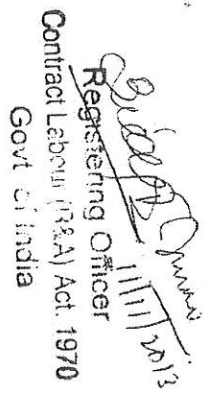 11/11/2013
Registering Officer
Contract Labour (R&A) Act. 1970
Govt of India